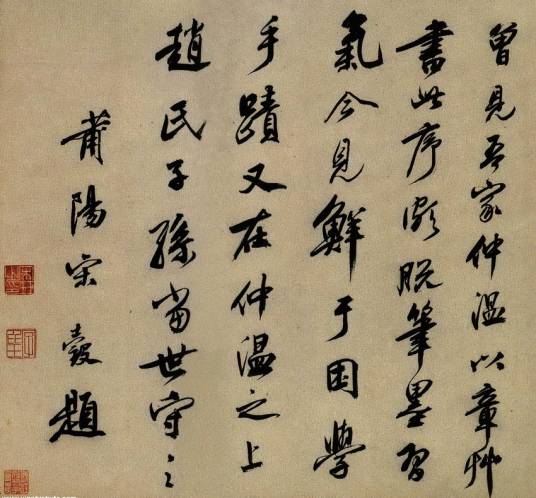 曾見吾家仲溫以章艸
書此序頗脫筆墨習
氣今見鮮于困學
手蹟又在仲溫之上
趙氏子孫當世守之
莆陽宋轂題